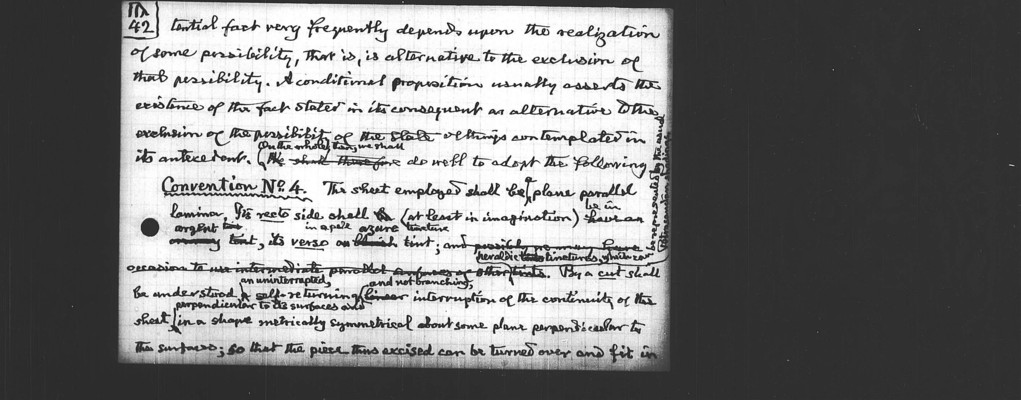 IIX
42
tential fact very frequently depends upon the realization
of some possibility, that is, is alternative to the exclusion of
that possibility. A conditional proposition usually asserts the
existence of the fact stated in its consequent as alternative to the
exclusion of the possibility of the state of things contemplated in
On the whole, then, we shall
its antecedent. We shall therefore do well to adopt the following
Convention No. 4. The sheet employed shall be a plane parallel
be in
lamina. Its recto side shall (at least in imagination) have an
argent tint in a pale azure tincture
tint, its verso a bluish tint; and possibly we may have
heraldic tinctures, which can
occasion to use intermediate parallel surfaces or other tints. By a cut shall
an uninterrupted, and not branching,
be understood a self-returning linear interruption of the continuity of the
perpendicular to its surfaces and
sheet in a shape metrically symmetrical about some plane perpendicular to
the surfaces; so that the piece thus excised can be turned over and fit in
be represented by the usual